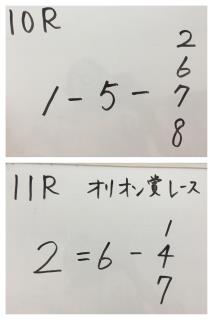 10R
1-5-2
6
7
8
11R オリオン賞レース
2=6-1
4
7